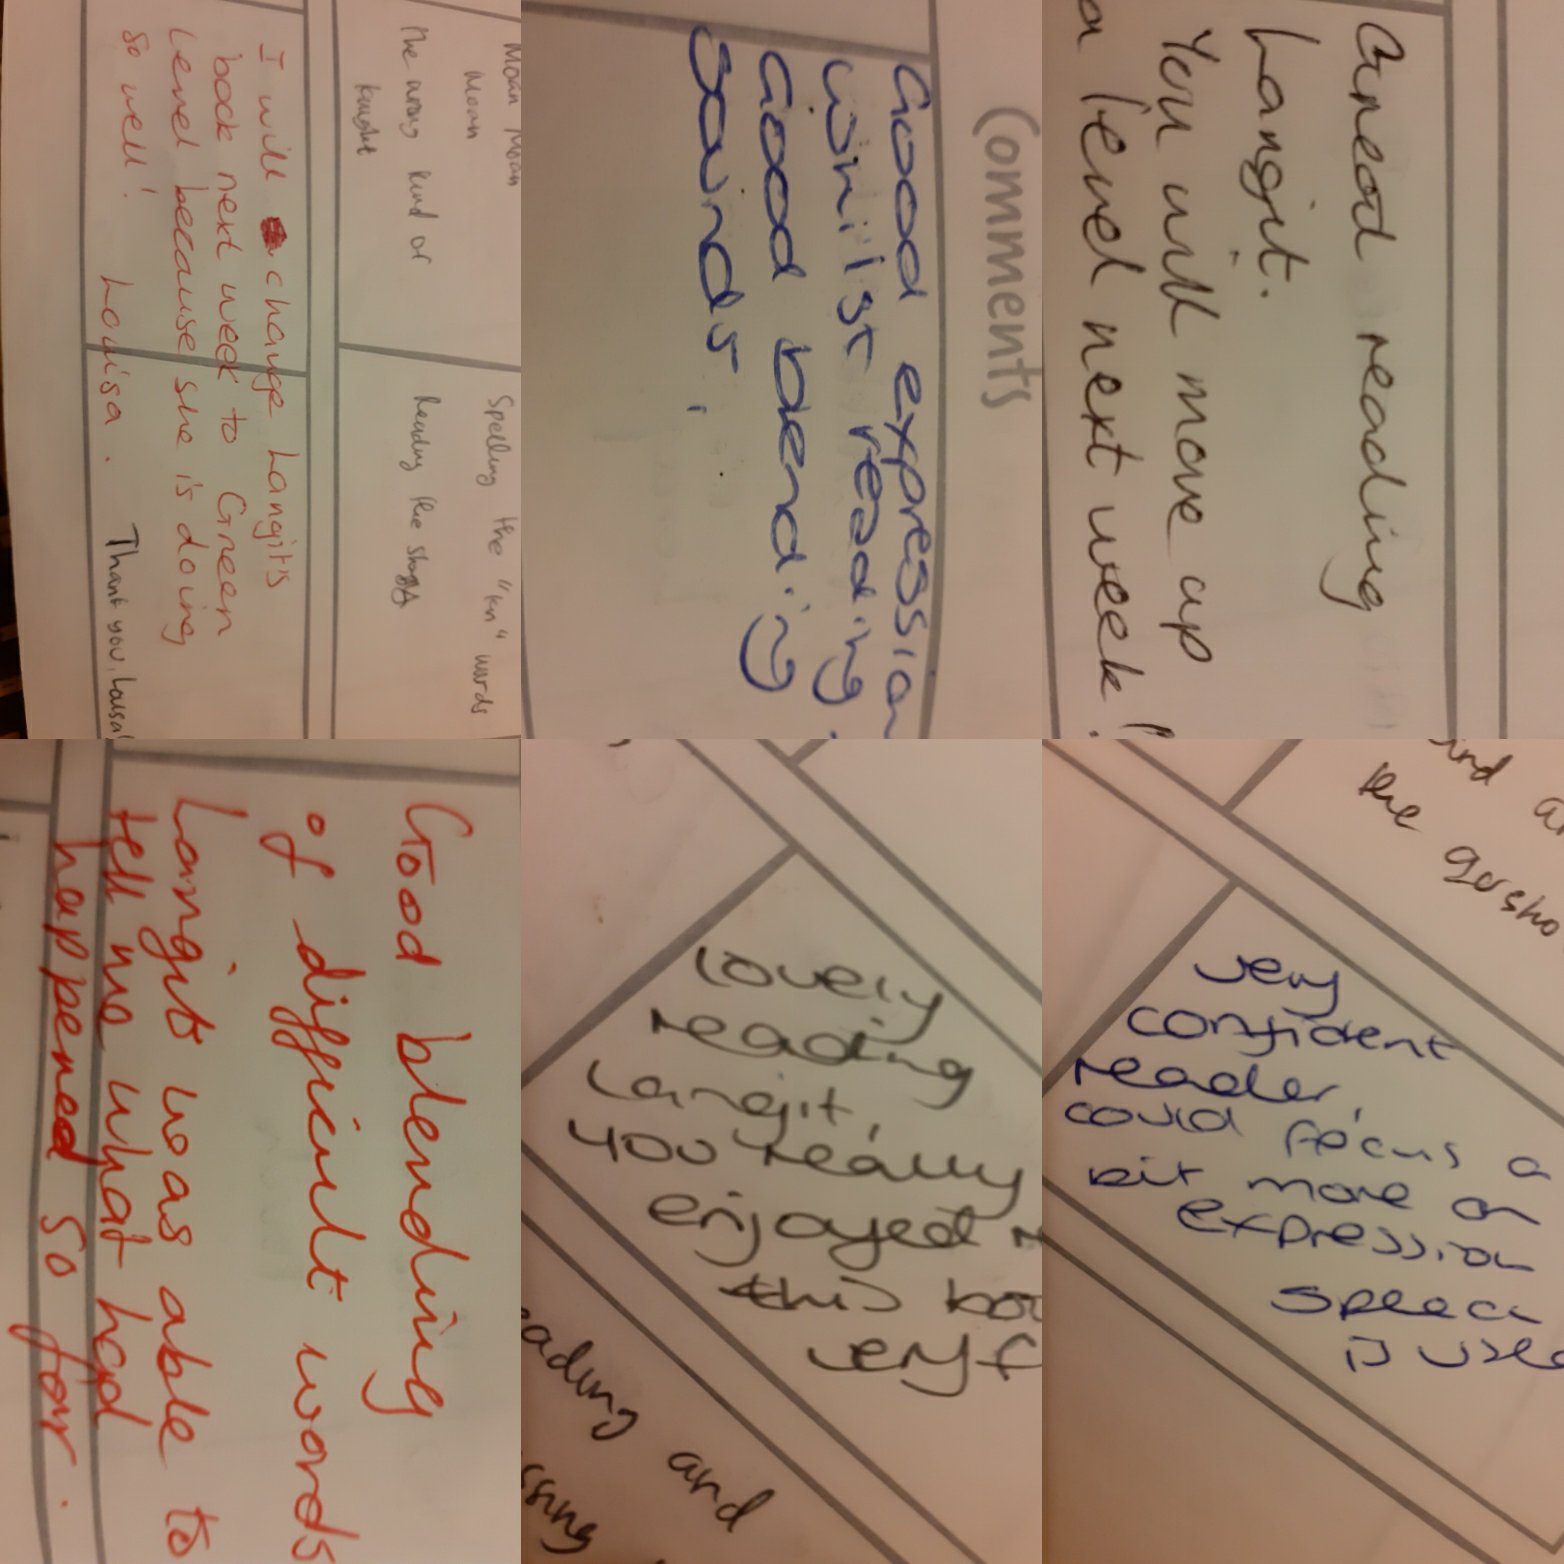 Moan Moan
Moan
The wrong kind of
knight
Spelling the "kn" words
Reading the
I will change Langit's
book next week to Green
Level because she is doing
so well! Louisa.
Thank you, Louisa!
Comments
Good expression
whilst reading.
Good blending
sounds.
Great reading
Langit.
You will move up
a level next week!
Good blending
of difficult words
Langit was able to
tell me what had
happened so far.
Lovely
reading
Langit,
you really
enjoyed
this
very
ading and
ssing
the
very
confident
reader,
could focus a
bit more on
expression